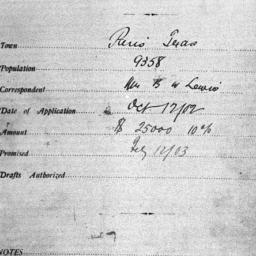 Town Paris Texas
Population 9358
Correspondent Mrs B W Lewis
Date of Application Oct 12/02
Amount $ 25000 10%
Promised July 12/03
Drafts Authorized
NOTES